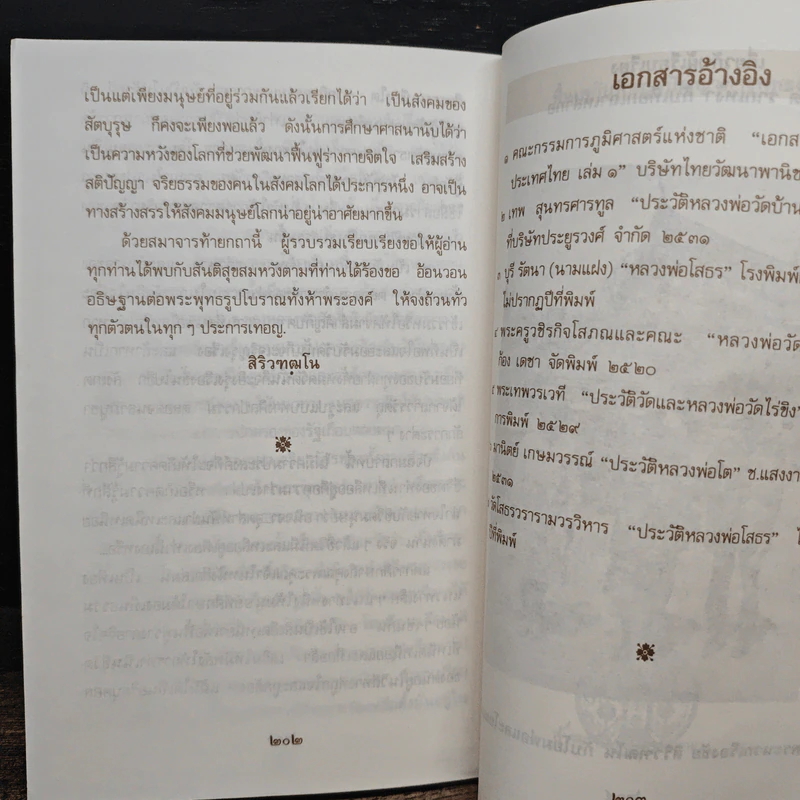 เป็นแต่เพียงมนุษย์ที่อยู่ร่วมกันแล้วเรียกได้ว่า เป็นสังคมของ
สัตบุรุษ ก็คงจะเพียงพอแล้ว ดังนั้นการศึกษาศาสนานับได้ว่า
เป็นความหวังของโลกที่ช่วยพัฒนาฟื้นฟูร่างกายจิตใจ เสริมสร้าง
สติปัญญา จริยธรรมของคนในสังคมโลกได้ประการหนึ่ง อาจเป็น
ทางสร้างสรรให้สังคมมนุษย์โลกน่าอยู่น่าอาศัยมากขึ้น
ด้วยสมาจารท้ายกถานี้ ผู้รวบรวมเรียบเรียงขอให้ผู้อ่าน
ทุกท่านได้พบกับสันติสุขสมหวังตามที่ท่านได้ร้องขอ อ้อนวอน
อธิษฐานต่อพระพุทธรูปโบราณทั้งห้าพระองค์ ให้จงถ้วนทั่ว
ทุกตัวตนในทุก ๆ ประการเทอญ.
สิริวฑฺฒโน
๒๐๒
เอกสารอ้างอิง
๑ คณะกรรมการภูมิศาสตร์แห่งชาติ “เอกสา
ประเทศไทย เล่ม ๑” บริษัทไทยวัฒนาพานิช
๒ เทพ สุนทรศารทูล “ประวัติหลวงพ่อวัดบ้าน
ที่บริษัทประยูรวงศ์ จำกัด ๒๕๓๑
๓ บุรี รัตนา (นามแฝง) “หลวงพ่อโสธร” โรงพิมพ์
ไม่ปรากฏปีที่พิมพ์
๔ พระครูวชิรกิจโสภณและคณะ “หลวงพ่อวัด
ก้อง เดชา จัดพิมพ์ ๒๕๒๐
พระเทพวรเวที “ประวัติวัดและหลวงพ่อวัดไร่ขิง”
การพิมพ์ ๒๕๒๙
มานิตย์ เกษมวรรณ์ “ประวัติหลวงพ่อโต” ช.แสงงา
๒๕๓๑
วัดโสธรวรารามวรวิหาร “ประวัติหลวงพ่อโสธร”
ปีที่พิมพ์
๒๐๓